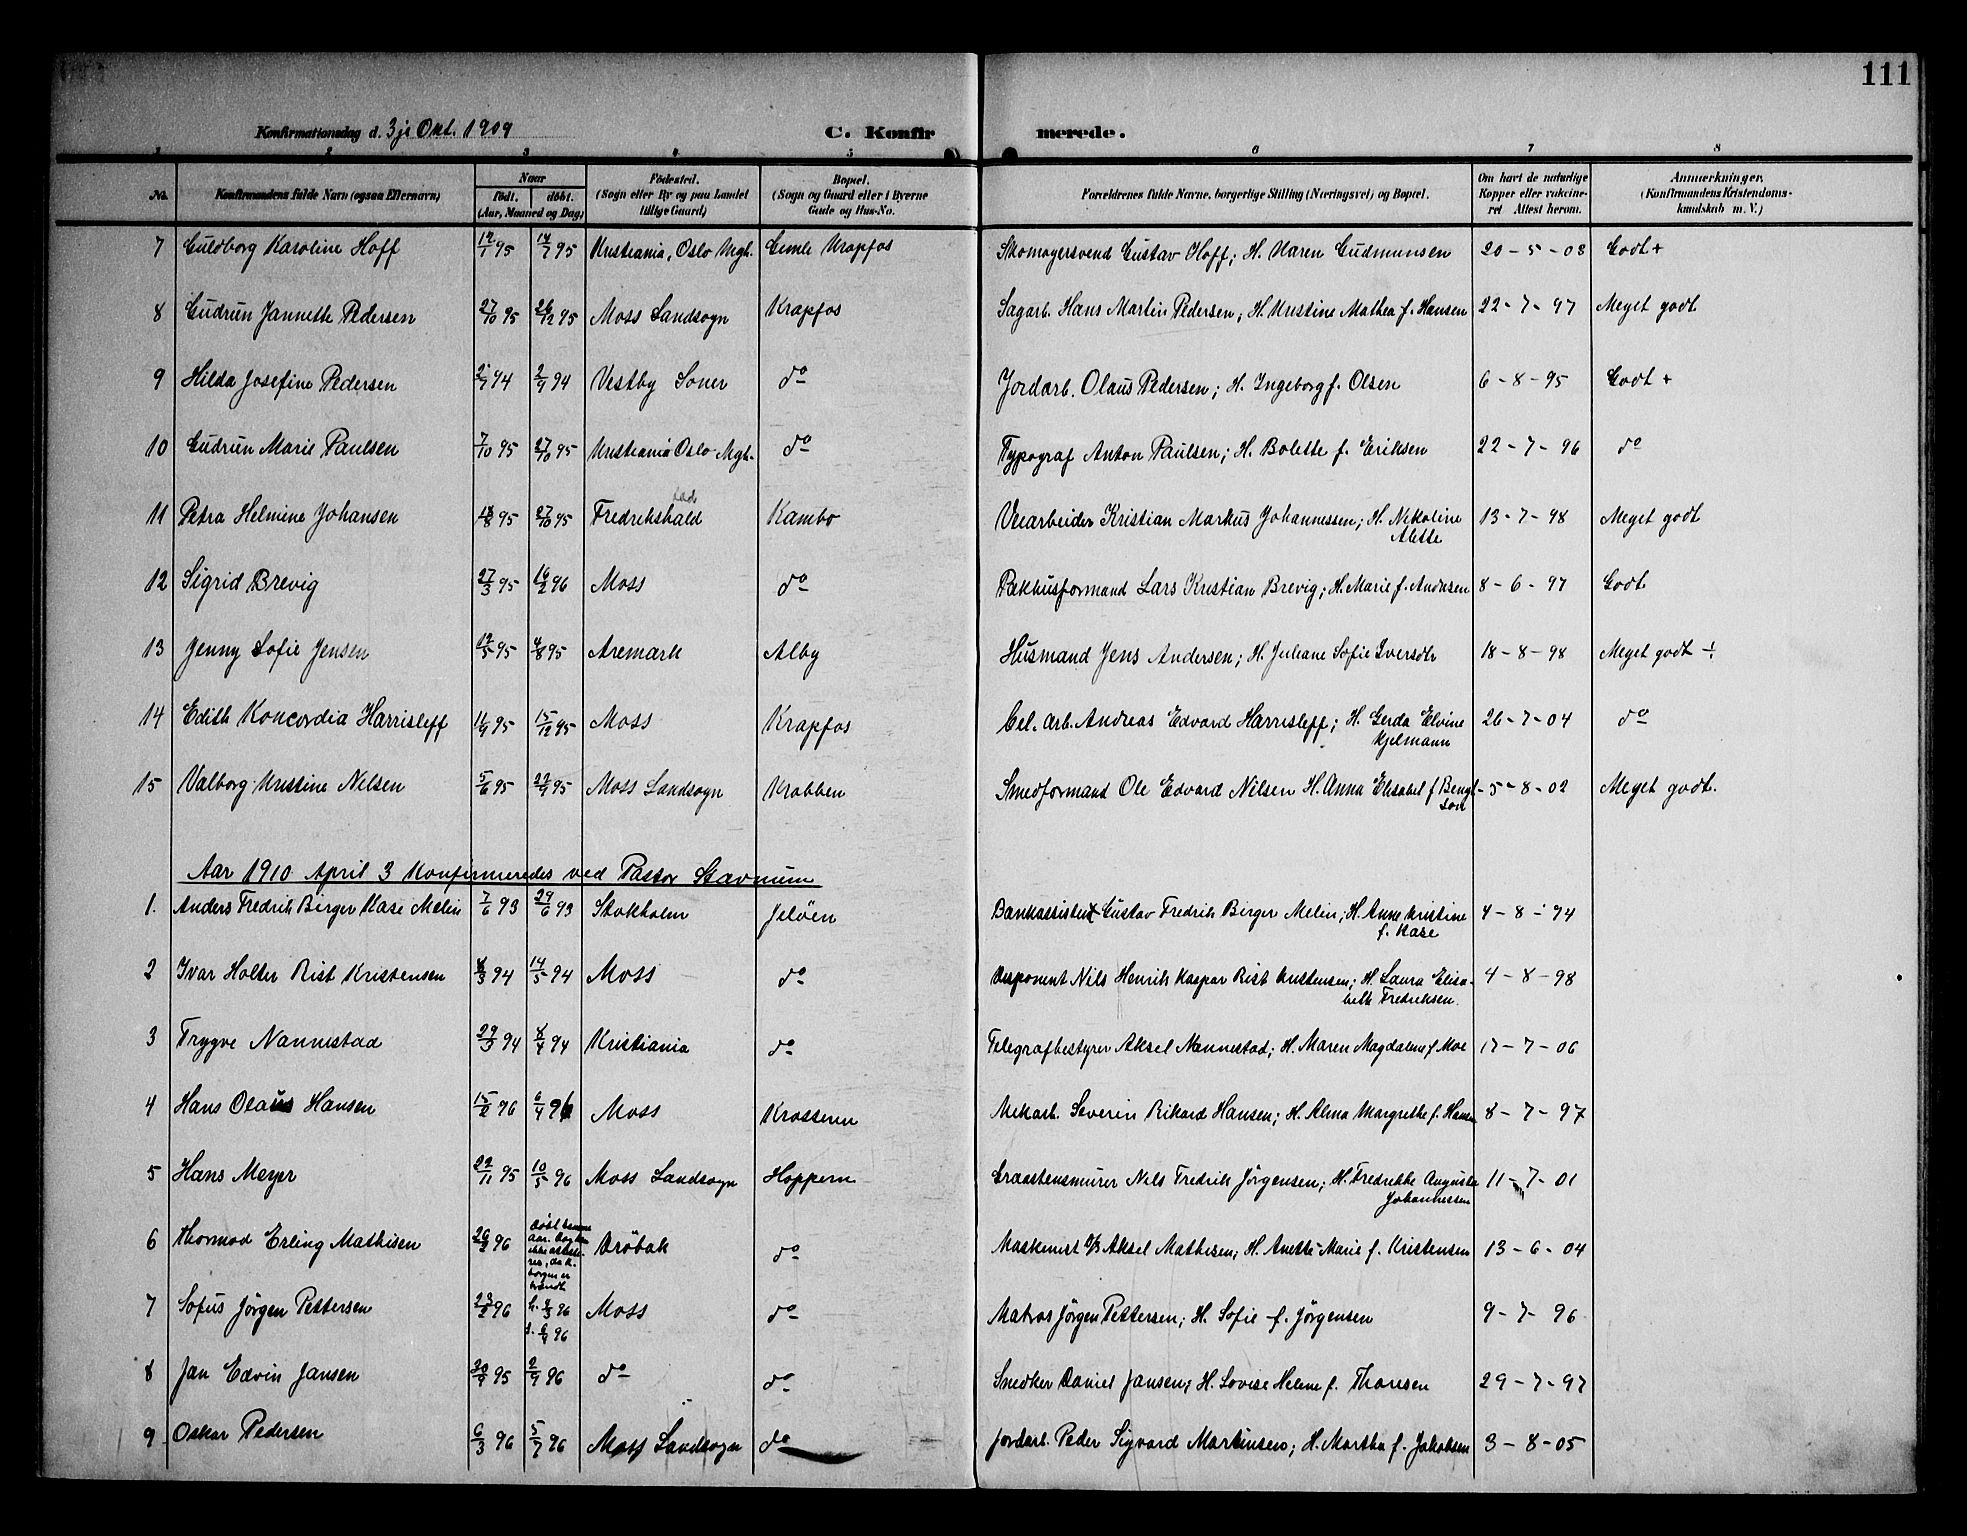 111
Konfirmationsdag d. 3je Okt. 1909 C. Konfirmerede.
1 2 3 4 5 6 7 8
No. Konfirmandens fulde Navn (ogsaa Efternavn) Naar født. døbt. (Aar, Maaned og Dag) Fødested. (Sogn eller By og paa Landet tillige Gaard) Bopæl. (Sogn og Gaard eller i Byerne Gade og Hus-No. Forældrenes fulde Navne, borgerlige Stilling (Næringsvei) og Bopæl. Om havt de naturlige Kopper eller vaccineret Attest herom. Anmærkninger. (Konfirmandens Kristendomskundskab m. V.)
7 Guldborg Karoline Hoff 95 14/7 95 Kristiania, Oslo Mgh. Gimle Krapfos Skomagersvend Gustav Hoff; H. Karen Gudmunsen 20-5-08 Godt +
8 Gudrun Janneth Pedersen 27/10 95 26/12 95 Moss Landsogn Krapfos Sagarb. Hans Martin Pedersen; H. Kristine Mathea f. Hansen 22-7-97 Meget godt
9 Hilda Josefine Pedersen 94 2/9 94 Vestby Soner do Jordarb. Olaus Pedersen; H. Ingeborg f. Olsen 6-8-95 Godt +
10 Gudrun Marie Paulsen 7/10 95 27/10 95 Kristiania Oslo Mgh. do Typograf Anton Paulsen; H. Bolette f. Eriksen 22-7-96 do
11 Petra Helmine Johansen 95 27/10 95 Fredrikshald Kambo Veiarbeider Kristian Markus Johannessen; H. Nikoline Alette 13-7-98 Meget godt
12 Sigrid Brevig 27/3 95 16/2 96 Moss do Pakhusformand Lars Kristian Brevig; H. Marie f. Andersen 8-6-97 Godt
13 Jenny Sofie Jensen 12/5 95 4/8 95 Aremark Alby Husmand Jens Andersen; H. Juliane Sofie Iversdtr 18-8-98 Meget godt ÷
14 Edith Koncordia Harrisleff 11/9 95 15/12 95 Moss Krapfos Cel. arb. Andreas Edvard Harrisleff; H. Gerda Elvine Kjelmann 26-7-04 do
15 Valborg Kristine Nilsen 5/6 95 22/9 95 Moss Landsogn Krabben Smedformand Ole Edvard Nilsen H. Anna Elisabet f Bengtson 5-8-02 Meget godt.
Aar 1910 April 3 Konfirmeredes ved Pastor Stavnum
1. Anders Fredrik Birger Kase Melin 7/6 93 29/6 93 Stokholm Jelöen Bankassistent Gustav Fredrik Birger Melin; H. Anne Kristine f. Kase 4-8-94
2 Ivar Holter Rist Kristensen 8/3 94 14/5 94 Moss do Disponent Nils Henrik Kaspar Rist Kristensen; H. Laura Elisabeth Fredriksen. 4-8-98
3 Trygve Nannestad 94 8/4 94 Kristiania do Telegrafbestyrer Aksel Nannestad; H. Maren Magdalene f Moe 17-7-06
4 Hans Olaus Hansen 15/2 96 6/4 96 Moss Krosseren Mekarb. Severin Rikard Hansen; H. Alma Margrethe f. Hansen 8-7-97
5 Hans Meyer 22/11 95 10/5 96 Moss Landsogn Hoppern Graastensmurer Nils Fredrik Jörgensen; H. Fredrikke Auguste Johannessen 11-7-01
6 Thormod Erling Mathisen 26/2 96 Dröbak do Maskinist Aksel Mathisen; H. Anette Marie f. Kristensen 13-6-04
7 Sofus Jörgen Pettersen 23/2 96 h. 2/3 96 Moss do Matros Jörgen Pettersen; H. Sofie f. Jörgensen 9-7-96
8 Jan Edvin Jansen 30/9 95 2/9 96 do do Snedker Daniel Jansen; H. Lovise Helene f. Thorsen 29-7-97
9 Oskar Pedersen 6/3 96 5/7 96 Moss Landsogn do Jordarb. Peder Sigvard Martinsen; H. Martha f. Jakobsen 3-8-05